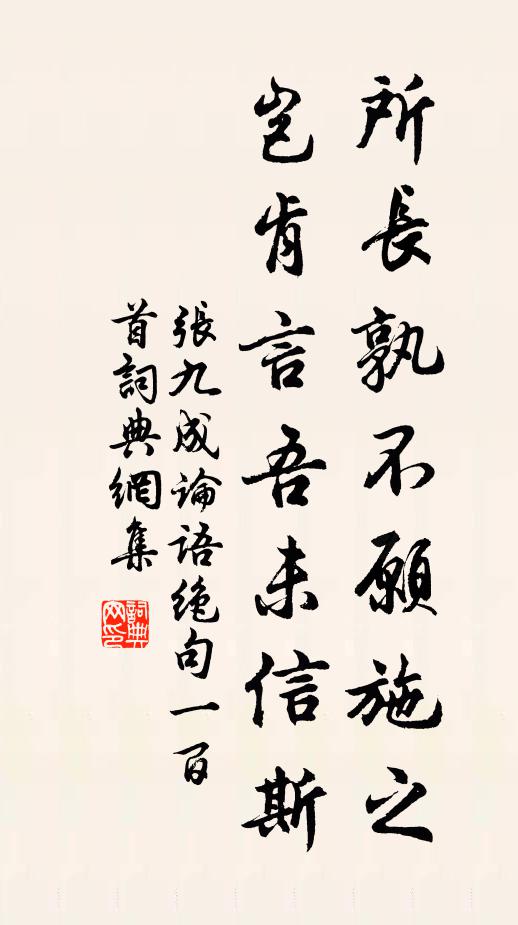 所長孰不願施之
豈肯言吾未信斯
張九成論語絕句一百
首詞典網集
詞典
网印